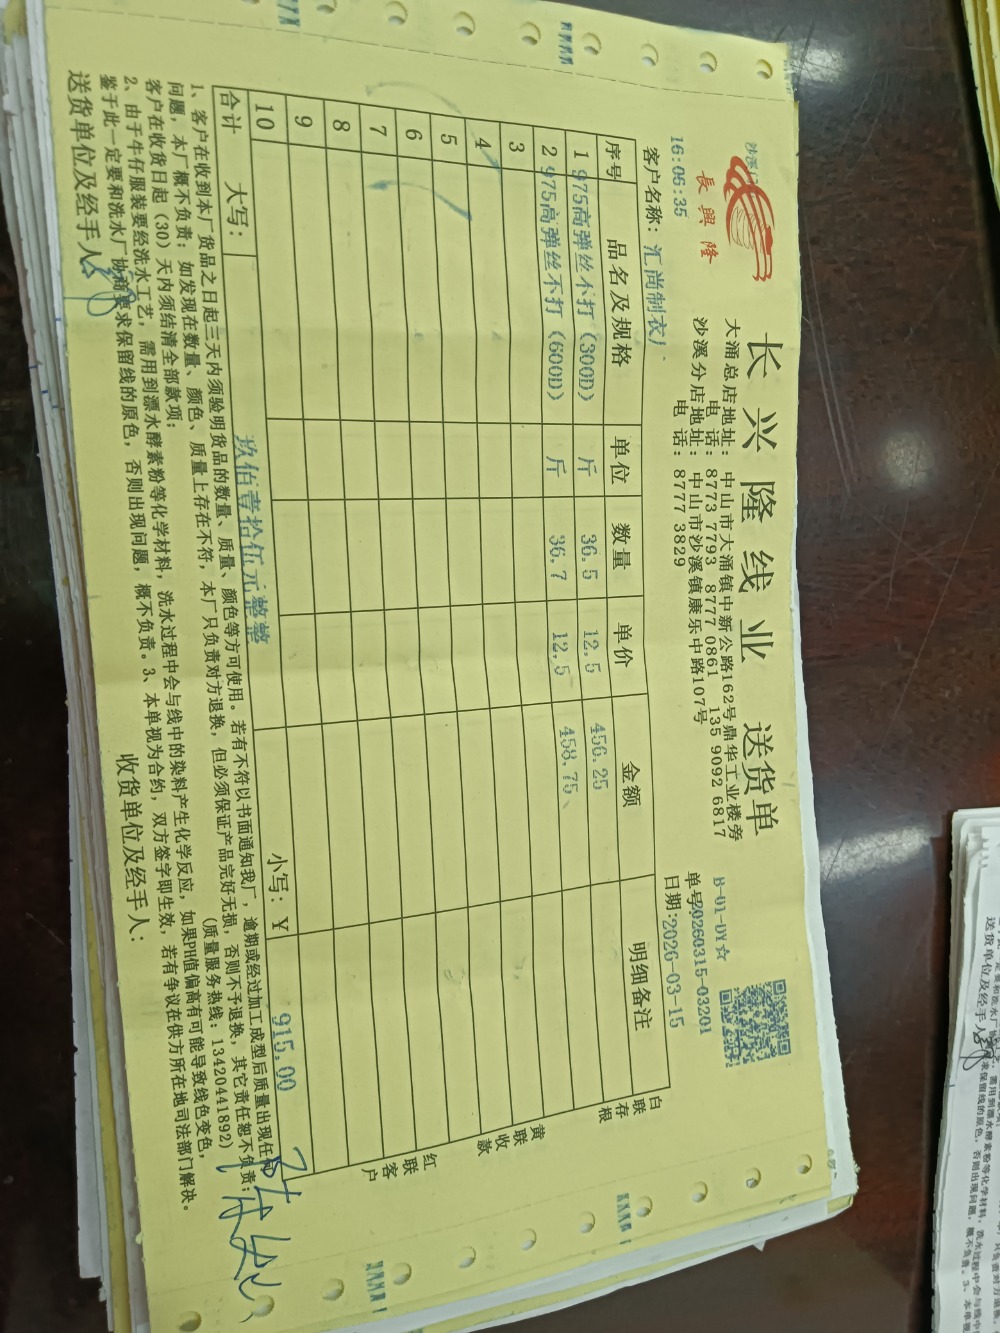 长兴隆线业 送货单
長興隆
大涌总店地址：中山市大涌镇中新公路162号鼎华工业楼旁
电话：8773 7793 8777 0861 135 9092 6817
沙溪分店地址：中山市沙溪镇康乐中路107号
电话：8777 3829
B-01-DY☆
单号20260315-03201
日期:2026-03-15
16:06:35
客户名称：汇尚制衣厂
序号 品名及规格 单位 数量 单价 金额 明细备注
1 975高弹丝不打（300D） 斤 36.5 12.5 456.25
2 975高弹丝不打（600D） 斤 36.7 12.5 458.75
3
4
5
6
7
8
9
10
合计 大写： 玖佰壹拾伍元整整 小写：￥ 915.00
白联存根
黄联收款
红联客户
1、客户在收到本厂货品之日起三天内须验明货品的数量、质量、颜色等方可使用。若有不符以书面通知我厂，逾期或经过加工成型后质量出现任何
问题，本厂概不负责；如发现在数量、颜色、质量上存在不符，本厂只负责对方退换，但必须保证产品完好无损，否则不予退换，其它责任恕不负责；
客户在收货日起（30）天内须结清全部款项； （质量服务热线：13420441892）
2、由于牛仔服装要经洗水工艺，需用到漂水酵素粉等化学材料，洗水过程中会与线中的染料产生化学反应，如果PH值偏高有可能导致线色变色，
鉴于此一定要和洗水厂协商要求保留线的原色，否则出现问题，概不负责。3、本单视为合约，双方签字即生效，若有争议在供方所在地司法部门解决。
送货单位及经手人： 收货单位及经手人：
送货单位及经手人